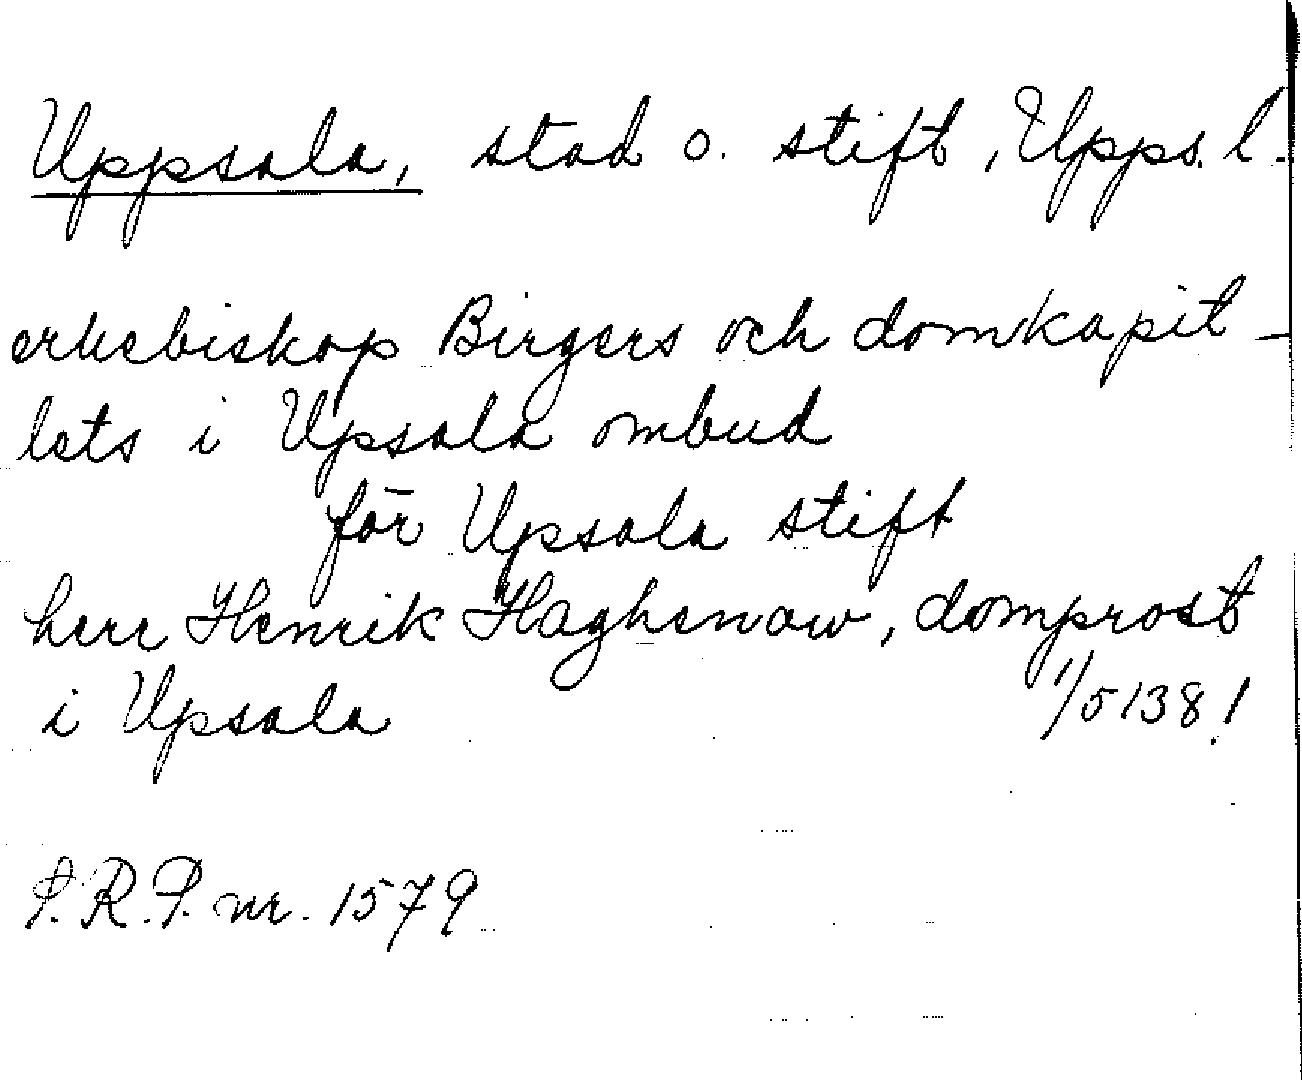 Uppsala, stad o. stift, Upps. l.
erkebiskop Birgers och domkapit-
lets i Upsala ombud
för Upsala stift
herr Henrik Haghenow, domprost
i Upsala 1/5 1381
S.R.P. nr. 1579